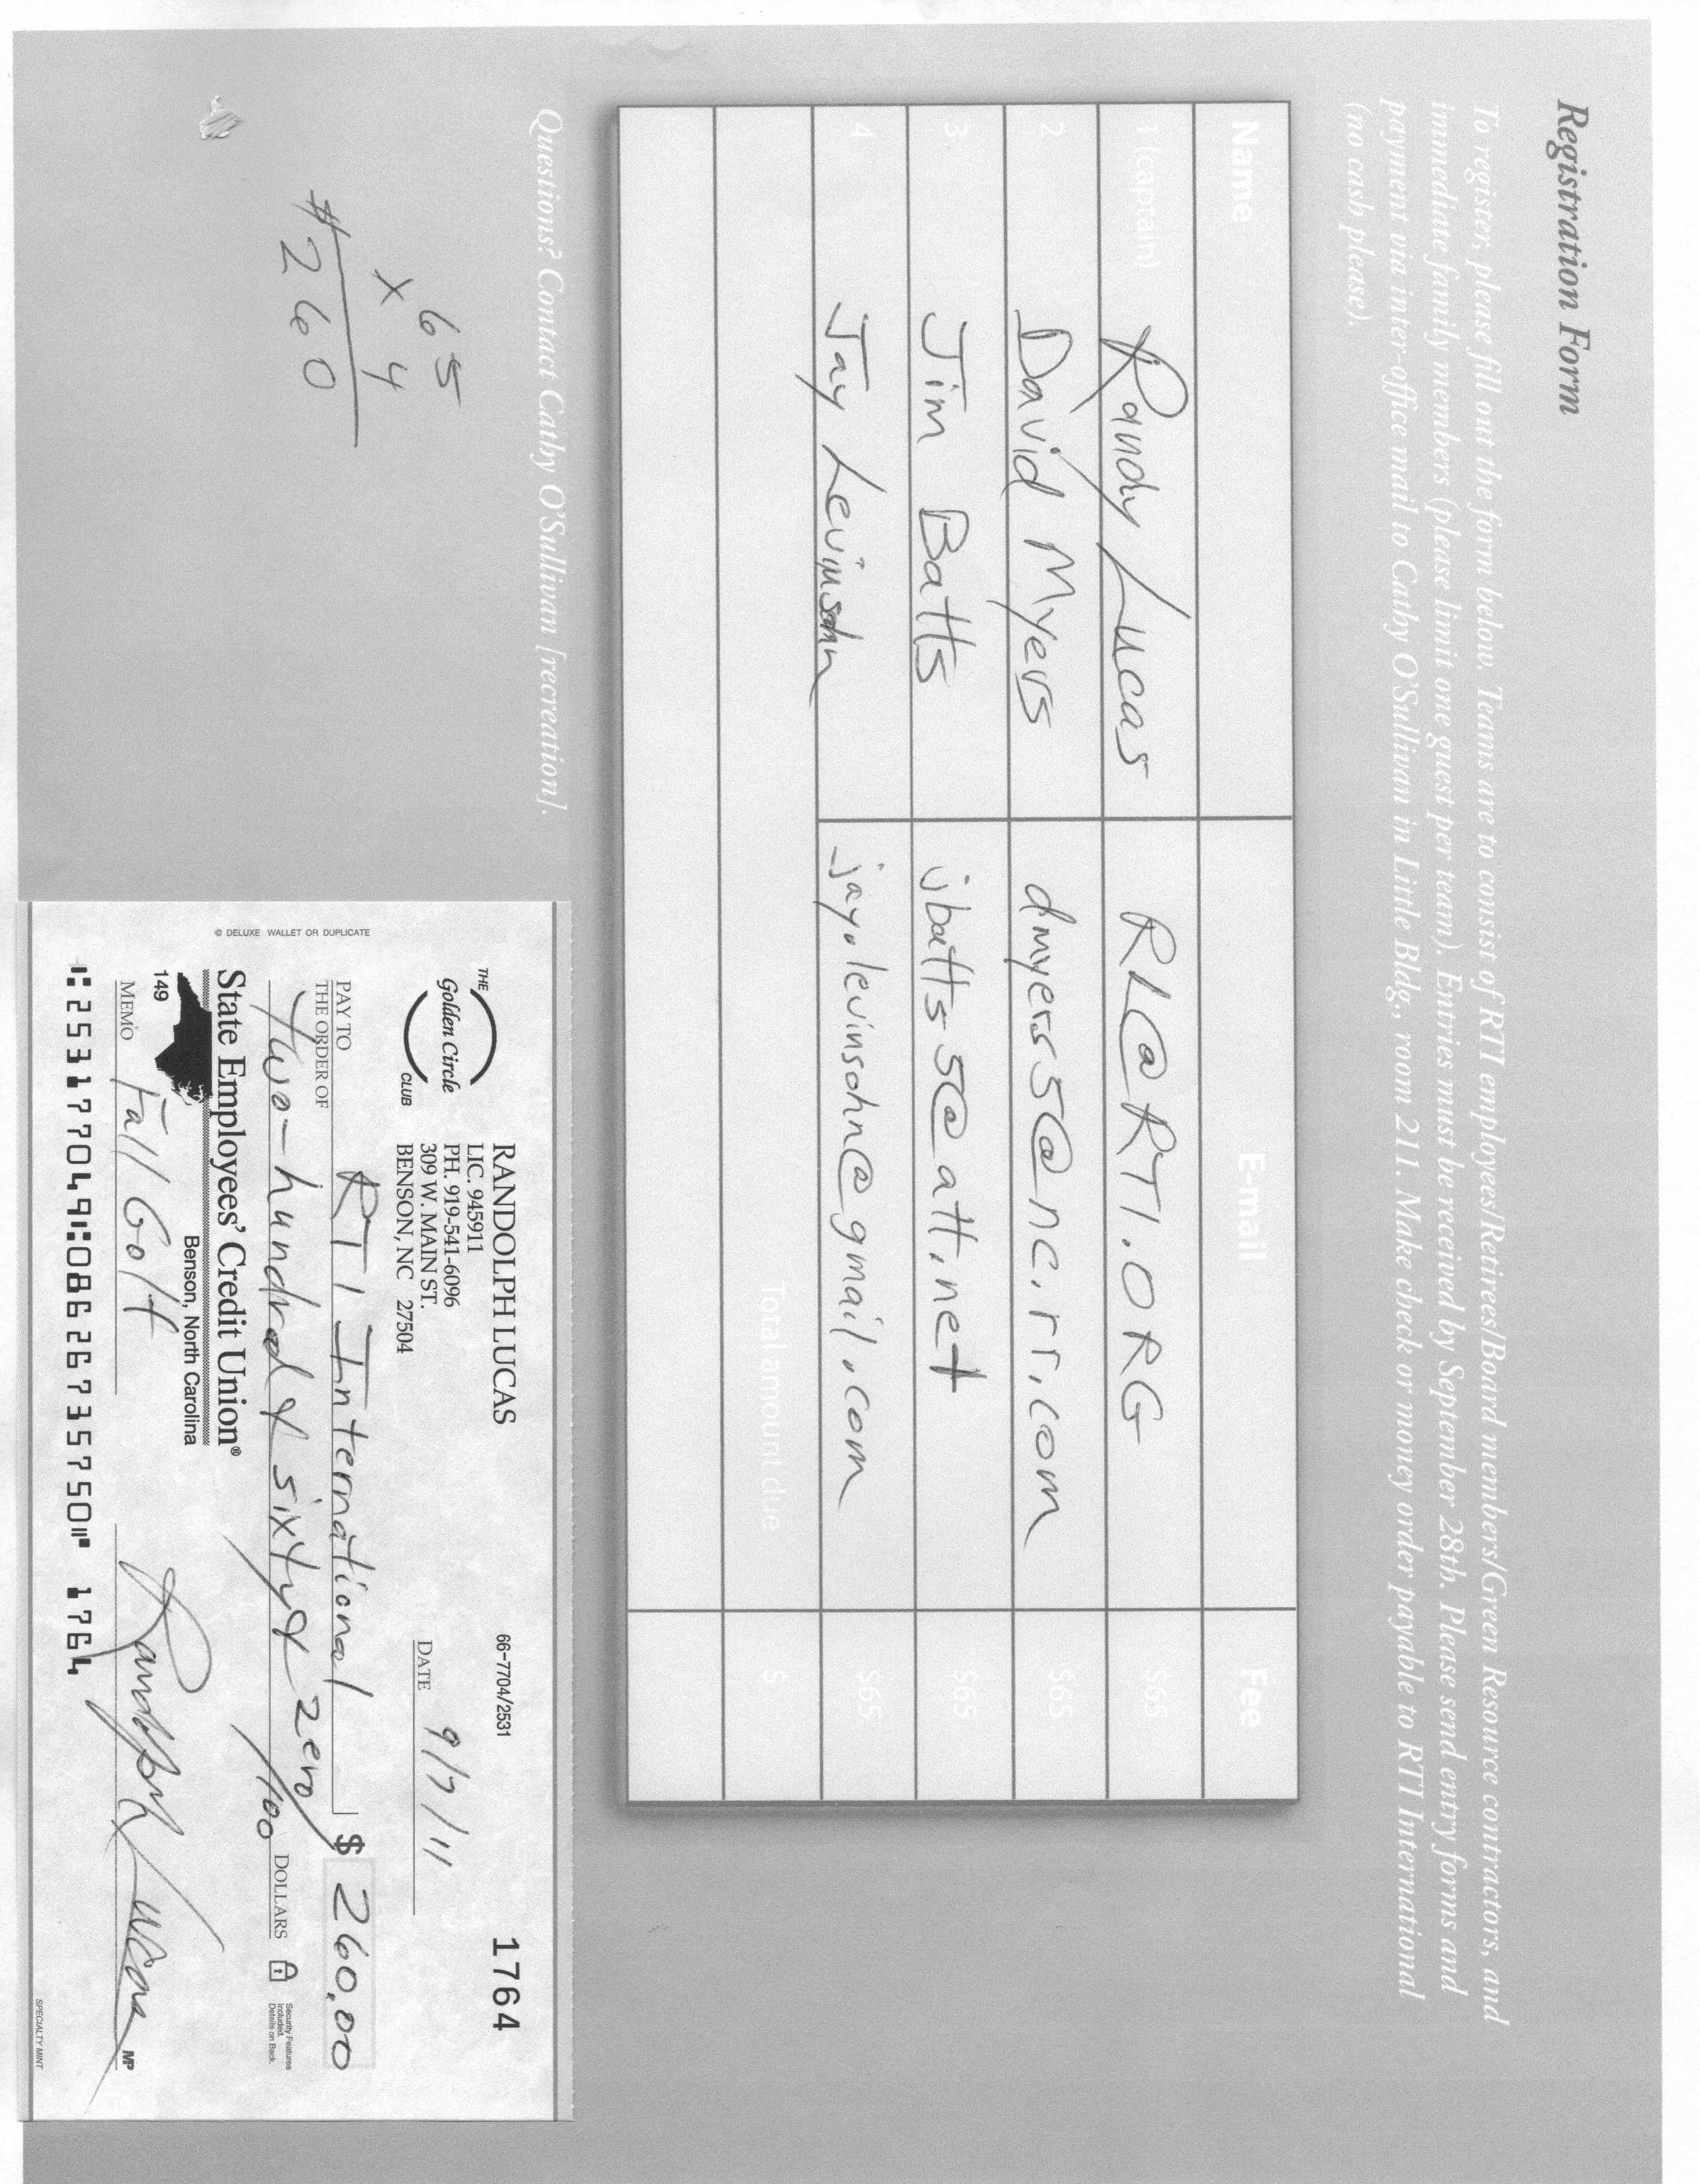 Registration Form
To register, please fill out the form below. Teams are to consist of RTI employees/Retirees/Board members/Green Resource contractors, and
immediate family members (please limit one guest per team). Entries must be received by September 28th. Please send entry forms and
payment via inter-office mail to Cathy O'Sullivan in Little Bldg., room 211. Make check or money order payable to RTI International
(no cash please).
Name E-mail Fee
1 (captain) Randy Lucas RL@RTI.ORG $65
2 David Myers dmyers5@nc.rr.com $65
3 Jim Batts jbatts5@att.net $65
4 Jay Levinsohn jay.levinsohn@gmail.com $65
Total amount due $
Questions? Contact Cathy O'Sullivan [recreation].
65
x 4
$260
THE
Golden Circle
CLUB
RANDOLPH LUCAS
LIC. 945911
PH. 919-541-6096
309 W. MAIN ST.
BENSON, NC 27504
66-7704/2531
1764
DATE 9/7/11
PAY TO
THE ORDER OF RTI International $ 260.00
Two-hundred & sixty & zero/100 DOLLARS
Security Features
Included.
Details on Back.
State Employees' Credit Union®
Benson, North Carolina
149
MEMO Fall Golf Randolph Lucas MP
⑆253177049⑆0862673575011⑈ 1764
© DELUXE WALLET OR DUPLICATE
SPECIALTY MINT